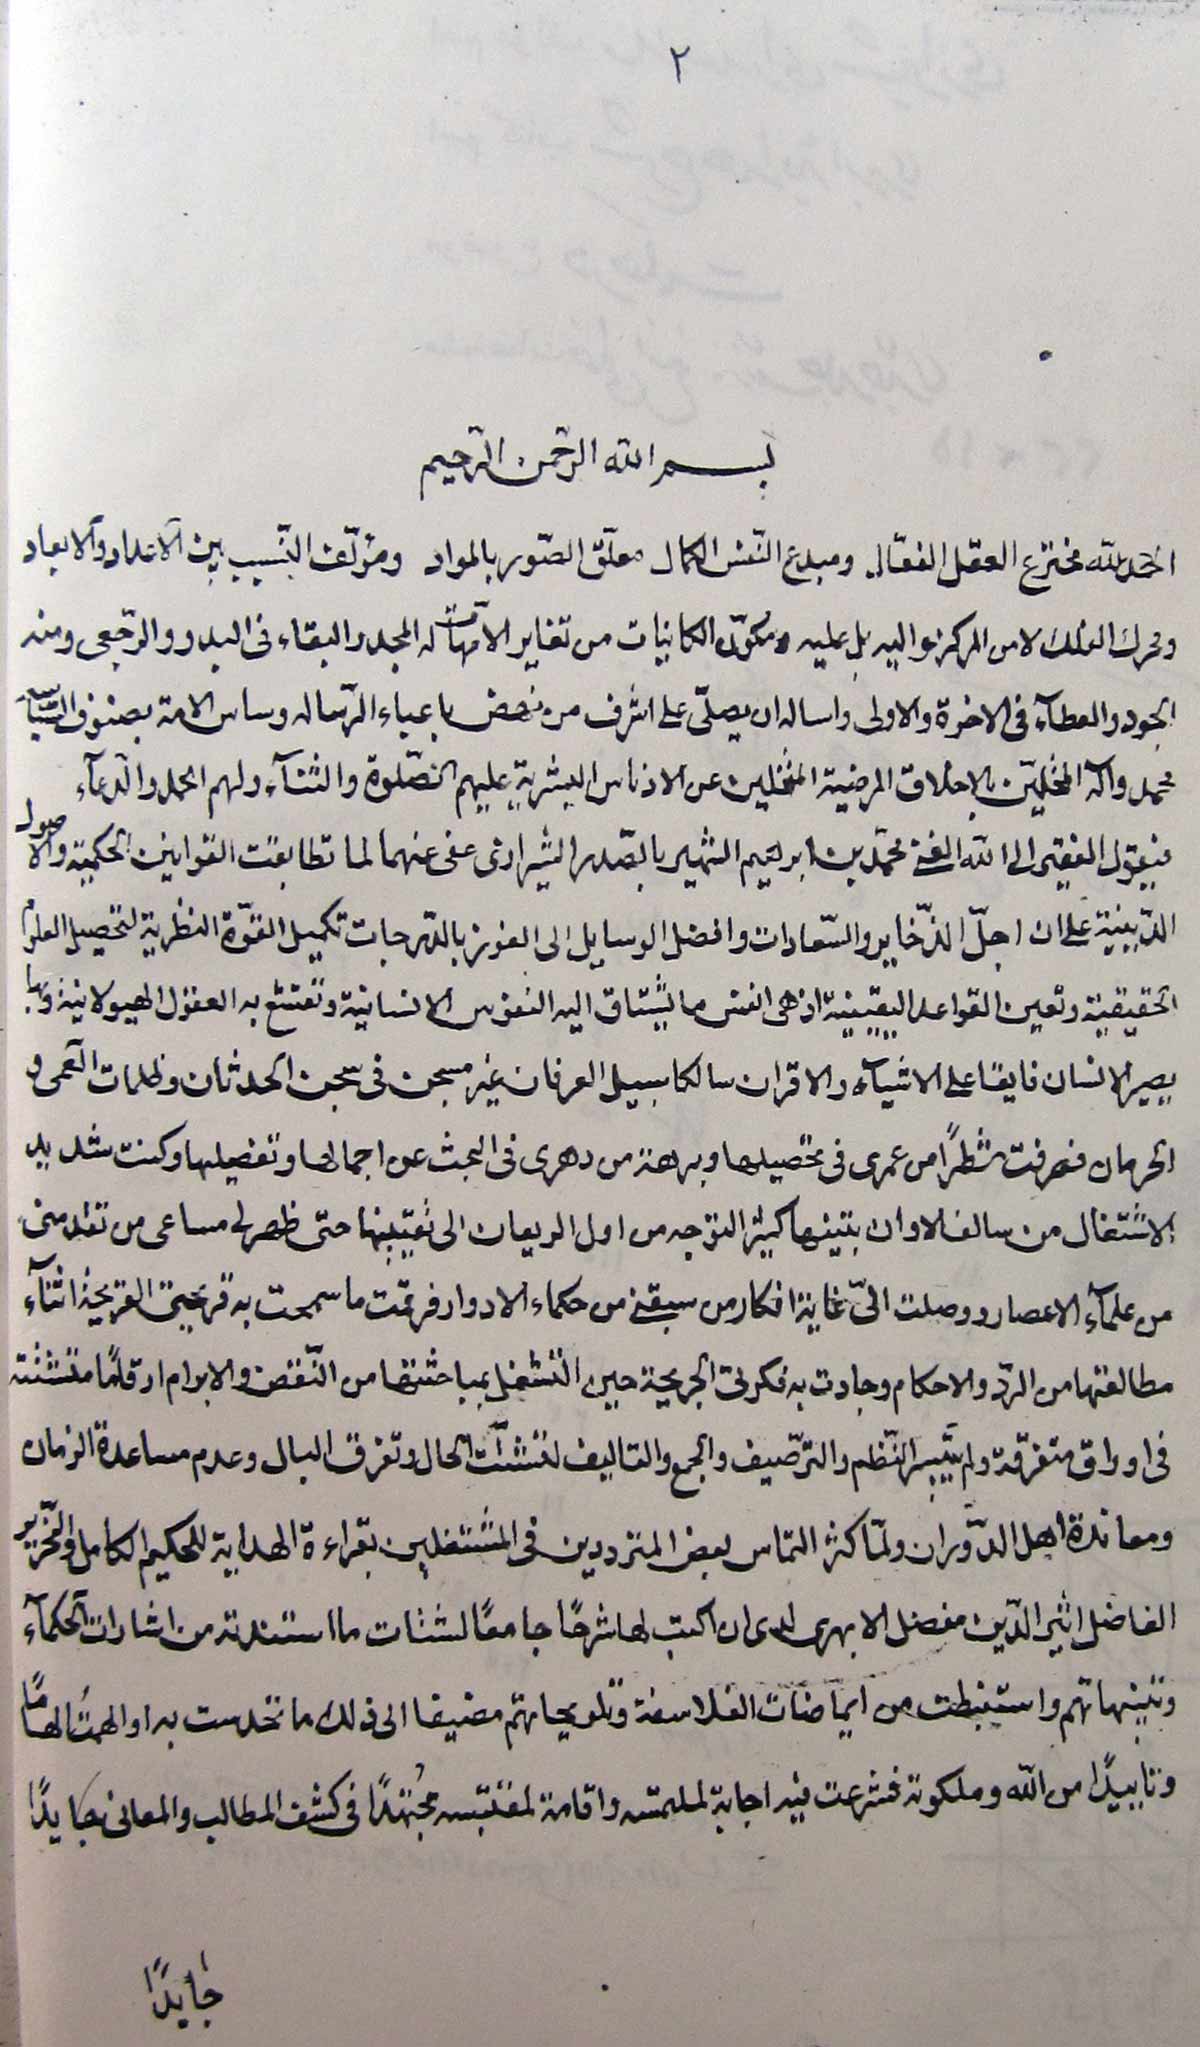 ٢
بسم الله الرحمن الرحيم
الحمد لله مخترع العقل الفعّال ومبدع النّفس الكمال معلّق الصّور بالمواد ومؤلّف النّسب بين الاعداد والابعاد
ومحرك الفلك لا من المركز ولا اليه بل عليه ومكوّن الكائنات من تغاير الامّهات له المجد والبقاء فى البدو والرّجعى ومنه
الجود والعطآء فى الاخرة والاولى واساله ان يصلّى على اشرف من نهض باعباء الرّساله وساس الامة بصنوف السّياسة
محمد وآله المحلّين بالاخلاق المرضية المخلّين عن الادناس البشرية عليهم الصّلوة والثنآء ولهم الحمد والدّعآء
فيقول الفقير الى الله الغنى محمّد بن ابرهيم الشهير بالصّدر الشيرازى عفى عنهما لما تطابقت القوانين الحكمية والاصول
الدّينية على ان اجلّ الذّخاير والسّعادات وافضل الوسايل الى الفوز بالدّرجات تكميل القوّة النظرية لتحصيل العلوم
الحقيقية وتعين القواعد اليقينية اذ هى انفس ما يشتاق اليه النفوس الانسانية وتتمتع به العقول الهيولانية وبها
يصير الانسان فايقا على الاشباه والاقران سالكا سبيل العرفان غير مسجن فى سجن الحدثان وظلمات العمى و
الحرمان فصرفت شطرًا من عمرى فى تحصيلها وبرهة من دهرى فى البحث عن اجمالها وتفصيلها وكنت شديد
الاشتغال من سالف الاوان بتبينها كثير التوجه من اول الريعان الى حتى ظهر لى مساعى من تقدمنى
من علمآء الاعصار ووصلت الىّ غاية افكار من سبقنى من حكماء الادوار فرقمت ما سمحت به قريحتى القريحة اثنآء
مطالعتها من الردّ والاحكام وجادت به فكرتى الجريحة حين التشغل بمباحثتها من النّقض والابرام ارقامًا متشتتة
فى اوراق متفرّقة ولم يتيسر النّظم والترّصيف والجمع والتاليف لتشتّت الحال وتفرق البال وعدم مساعدة الزمان
ومعاندة اهل الدّوران ولمّا كثر التماس بعض المترددين فى المشتغلين بقراءة الهداية للحكيم الكامل والنّحرير
الفاضل اثير الدّين مفضل الابهرى لدى ان اكتب لها شرحًا جامعًا لشتات ما استفدته من اشارات الحكمآء
وتنبيهاتهم واستنبطت من ايماضات الفلاسفة وتلويحاتهم مضيفا الى ذلك ما تحدست به او الهمت الهامًا
وتاييدًا من الله وملكوته فشرعت فيه اجابة لملتمسه واقامة لمقتبسه مجتهدًا فى كشف المطالب والمعانى جايدًا
جايدًا